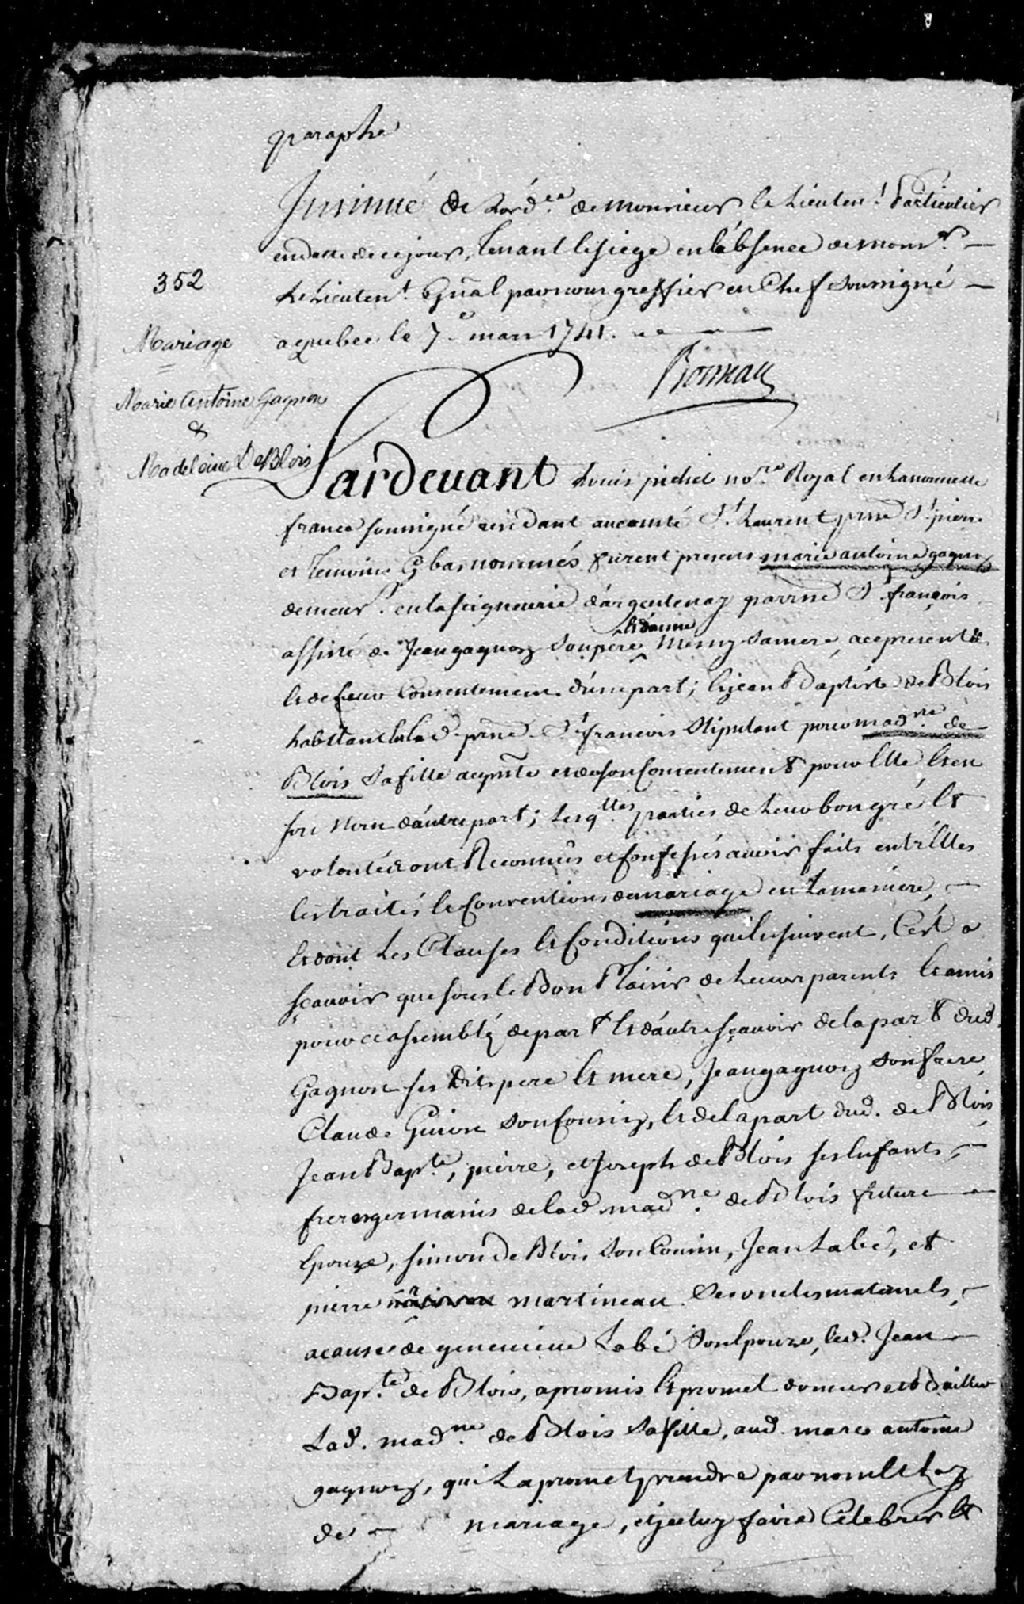 paraphe
Insinué de Lord.ce de monsieur le Lieuten.t Particulier
en datte de ce jour, tenant le siege en l'absence de mons.r
Le Lieuten.t Gñal par nous greffier en Chef soussigné
a quebec le 7.e mars 1741.
Boisseau
352
Mariage
Marie Antoine Gagnon
&
Madeleine de Blois
Pardevant Louis pichet no.re Royal en la nouvelle
france soussigné residant au comté S.t Laurent prsse S.t pierre
et temoins Cy bas nommés, furent presens marie antoine gagnon
demeur.t en la seigneurie d'argentenay parrsse S.t françois
assisté de Jean gagnon son pere, messy sa mere, ace presents
et de leur Consentement d'une part; Et jean Baptiste de Blois
habitant de la d. prsse S.t francois stipulant pour mad.ne de
Blois sa fille a ce pnte et de son Consentement pour Elle Et en
son nom d'autre part; lesq.lles parties de Leur bon gré Et
volontés ont Reconnus et Confessés avoir faits entr'Elles
les traités Et Conventions de mariage en La maniere,
Et dont Les Clauses Et Conditions qui Ensuivent, C'est a
sçavoir que sous le Bon Plaisir de Leurs parents Et amis
pour ce assemblé de part Et d'autre sçavoir de la part dud.
Gagnon ses dits pere Et mere, Jean gagnon son frere,
Claude Guion son Cousin, Et de la part dud. de Blois
Jean Bap.te, pierre, et Joseph de Blois ses Enfants,
freres germains de la d. mad.ne de Blois future
Epouze, simon de Blois son Cousin, Jean Labé, et
pierre martineau ses oncles maternels,
a cause de genevieve Labé son Epouze, led. Jean
Bap.te de Blois, a promis Et promet donner et Bailler
Lad. mad.ne de Blois sa fille, aud. marie antoine
gagnon, qui La promet prendre par nom Et Loy
de mariage, et jceluy faire Celebrer Et